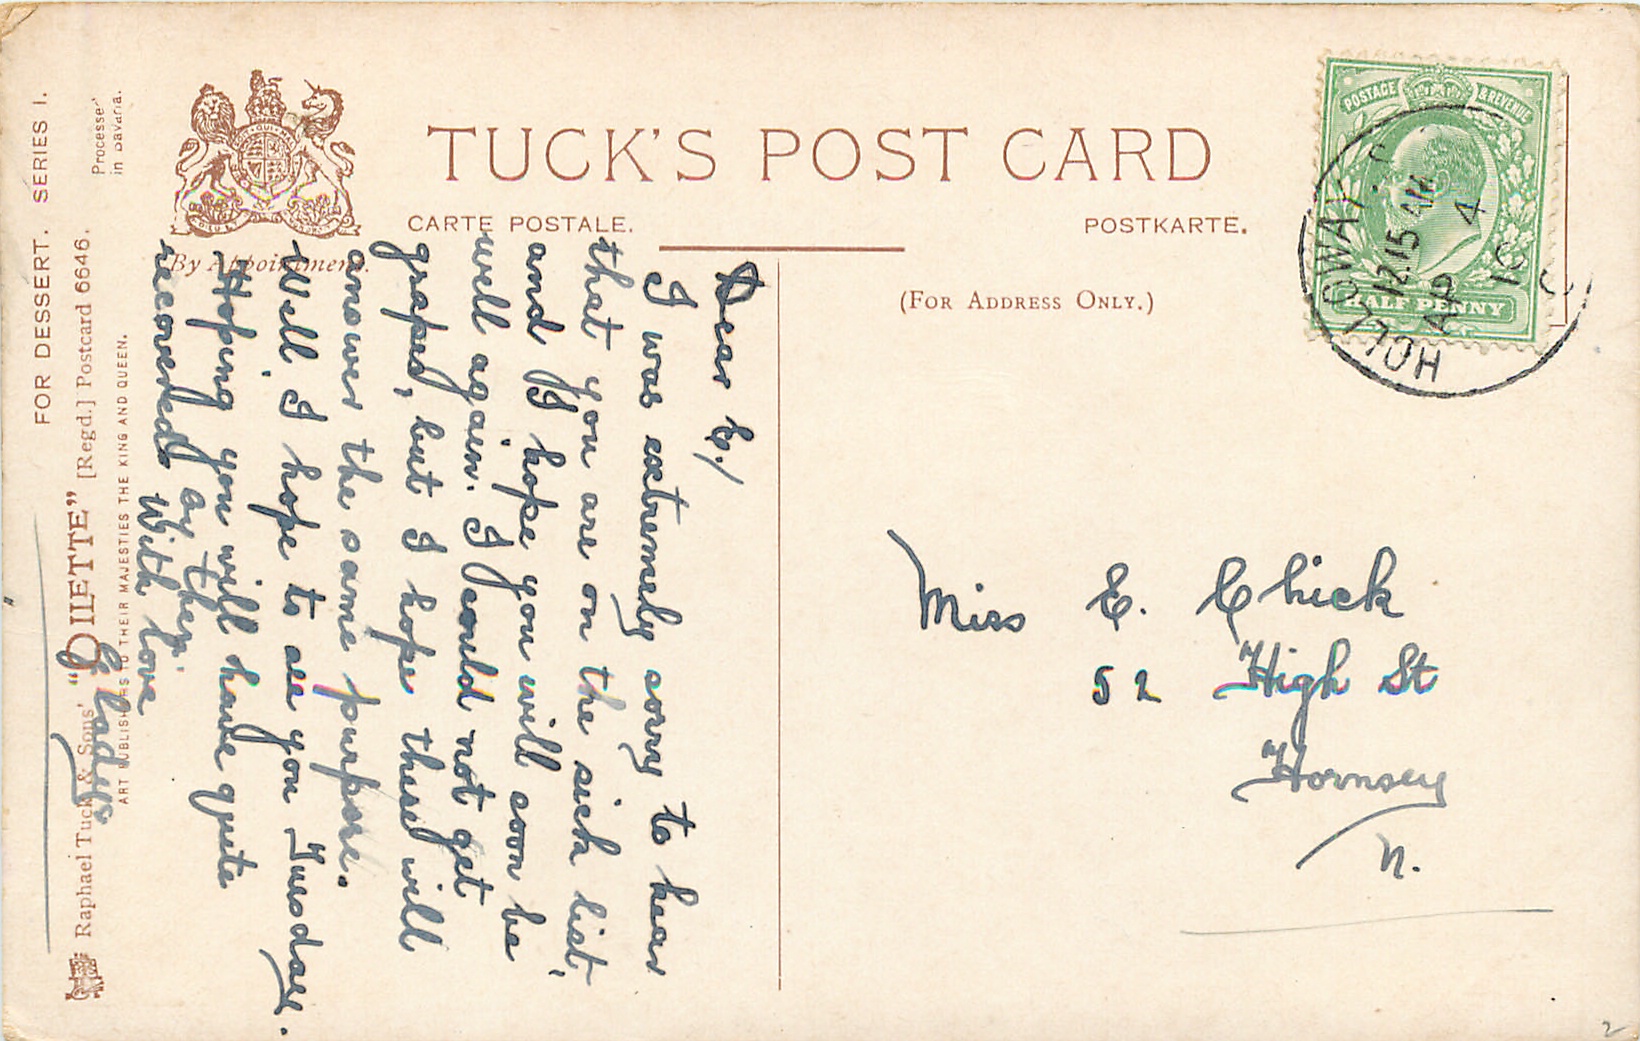 TUCK'S POST CARD
CARTE POSTALE.
POSTKARTE.
By Appointment.
(FOR ADDRESS ONLY.)
POSTAGE & REVENUE
HALF PENNY
HOLLOWAY
12.15 AM
AP 4
10
Dear C./
I was extremely sorry to hear
that you are on the sick list,
and I hope you will soon be
well again. I could not get
grapes, but I hope these will
answer the same purpose.
Well, I hope to see you Tuesday.
Hoping you will have quite
recovered by then.
With love
Gladys
Miss E. Chick
52 High St
Hornsey
N.
FOR DESSERT. SERIES I.
Raphael Tuck & Sons' "OILETTE" [Regd.] Postcard 6646.
ART PUBLISHERS TO THEIR MAJESTIES THE KING AND QUEEN.
Processed
in Bavaria.
2